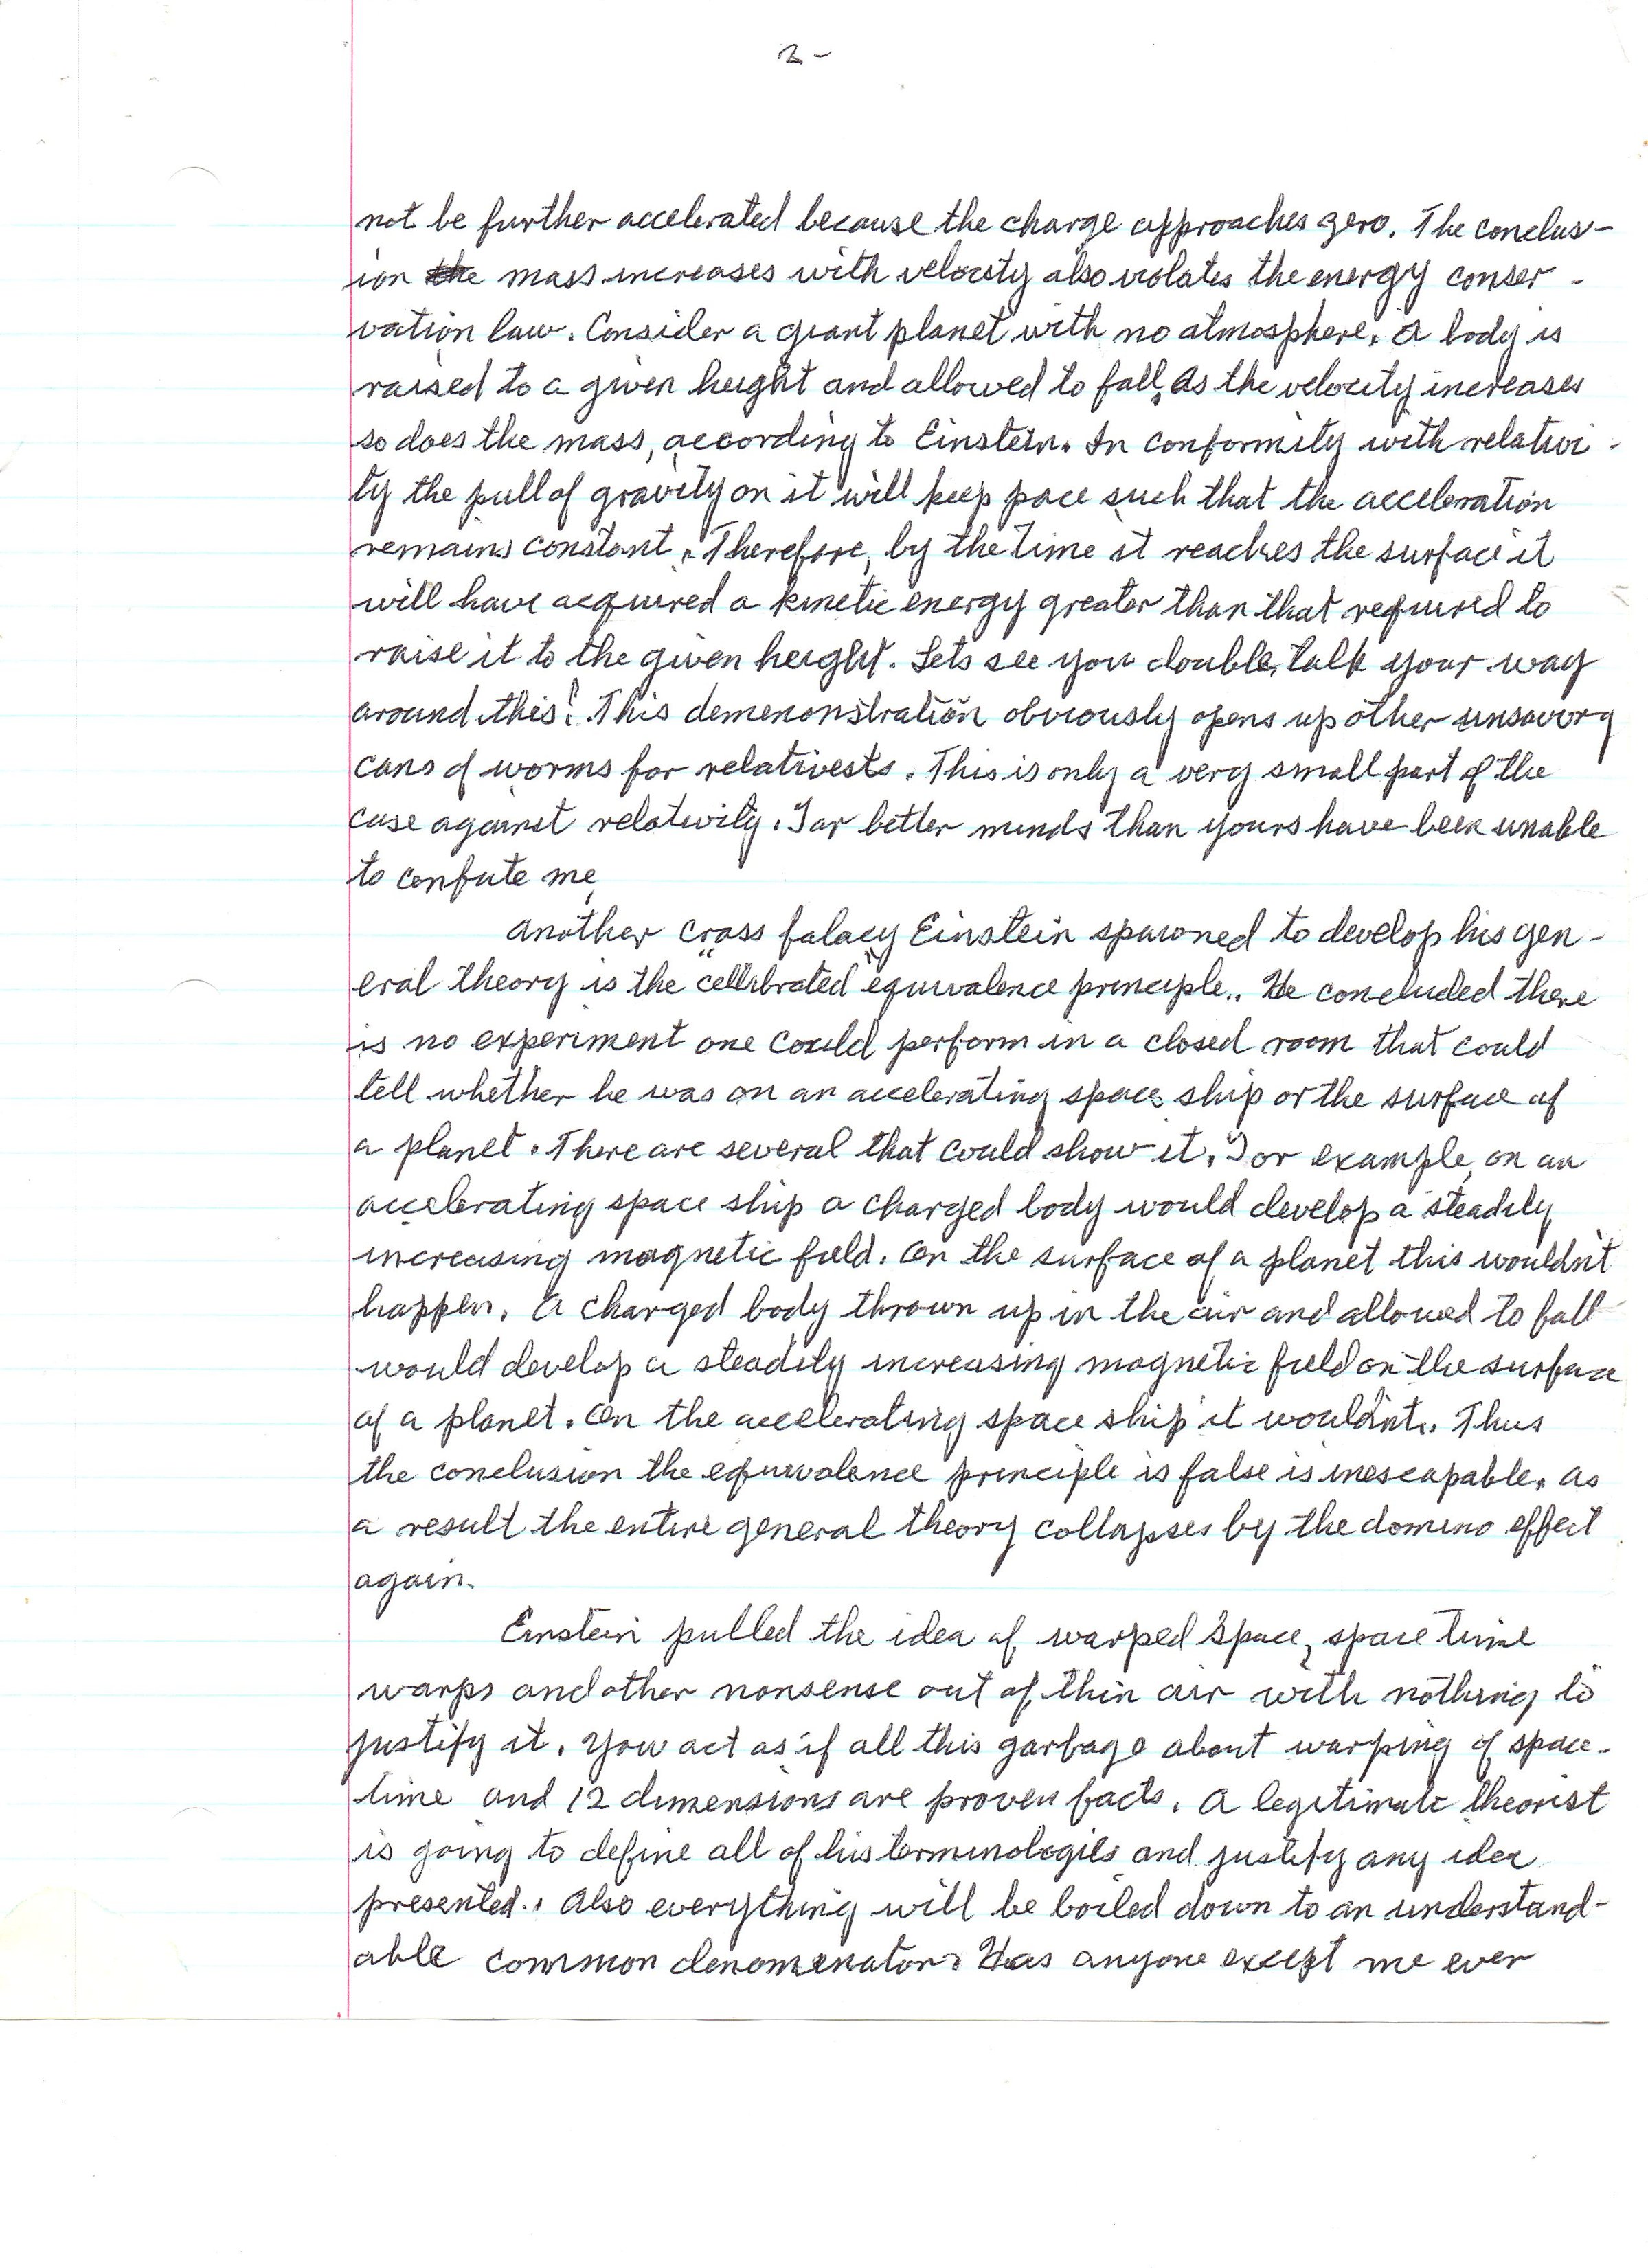 2 -
not be further accelerated because the charge approaches zero. The conclus-
ion the mass increases with velocity also violates the energy conser-
vation law. Consider a giant planet with no atmosphere. A body is
raised to a given height and allowed to fall. As the velocity increases
so does the mass, according to Einstein. In conformity with relativi-
ty the pull of gravity on it will keep pace such that the acceleration
remains constant. Therefore, by the time it reaches the surface it
will have acquired a kinetic energy greater than that required to
raise it to the given height. Lets see you double talk your way
around this! This demenonstration obviously opens up other unsavory
cans of worms for relativests. This is only a very small part of the
case against relativity. Far better minds than yours have been unable
to confute me.
Another crass falacy Einstein spawned to develop his gen-
eral theory is the "cellebrated" equivalence principle. He concluded there
is no experiment one could perform in a closed room that could
tell whether he was on an accelerating space ship or the surface of
a planet. There are several that could show it. For example, on an
accelerating space ship a charged body would develop a steadily
increasing magnetic field. On the surface of a planet this wouldn't
happen. A charged body thrown up in the air and allowed to fall
would develop a steadily increasing magnetic field on the surface
of a planet. On the accelerating space ship it wouldn't. Thus
the conclusion the equivalence principle is false is inescapable. As
a result the entire general theory collapses by the domino effect
again.
Einstein pulled the idea of warped space, space time
warps and other nonsense out of thin air with nothing to
justify it. You act as if all this garbage about warping of space-
time and 12 dimensions are proven facts. A legitimate theorist
is going to define all of his terminologies and justify any idea
presented. Also everything will be boiled down to an understand-
able common denomenator. Has anyone except me ever